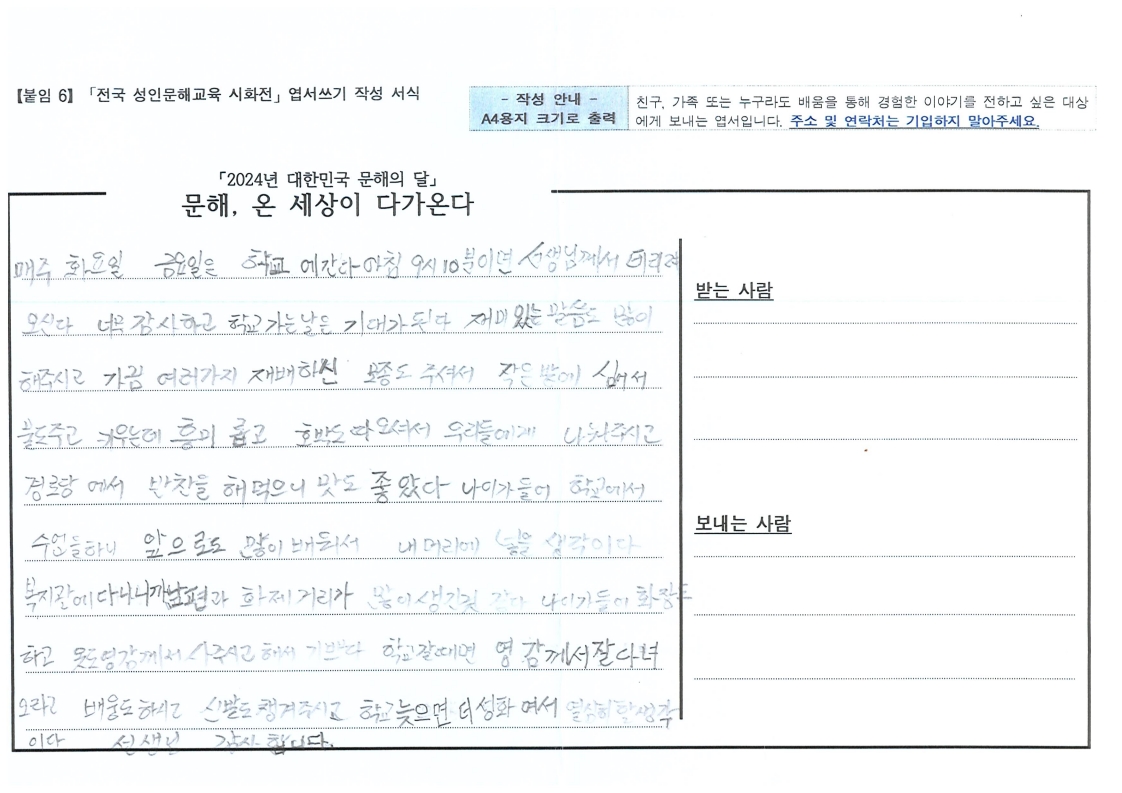 【붙임 6】 「전국 성인문해교육 시화전」 엽서쓰기 작성 서식
- 작성 안내 -
A4용지 크기로 출력
친구, 가족 또는 누구라도 배움을 통해 경험한 이야기를 전하고 싶은 대상
에게 보내는 엽서입니다. 주소 및 연락처는 기입하지 말아주세요.
「2024년 대한민국 문해의 달」
문해, 온 세상이 다가온다
매주 화요일 금요일은 학교 에간다 아침 9시 10분이면 선생님께서 데리러
오신다 너무 감사하고 학교가는날은 기대가된다 재미있는 말씀도 많이
해주시고 가끔 여러가지 재배하신 모종도 주셔서 작은 밭에 심어서
물도주고 키우는데 흥미 롭고 호박도 따 오셔서 우리들에게 나눠주시고
경로당 에서 반찬을 해먹으니 맛도 좋았다 나이가들어 학교에서
수업들하니 앞으로도 많이 배워서 내 머리에 넣을 생각이다
복지관에다니니까남편과 화제거리가 많이생긴것 같다 나이가들이 화장도
하고 옷도영감께서 사주시고 해서 기쁘다 학교갈때면 영감께서잘다녀
오라고 배웅도하시고 신발도챙겨주시고 학교늦으면 더성화 여서 열심히할생각
이다 선생님 감사 합니다.
받는 사람
보내는 사람